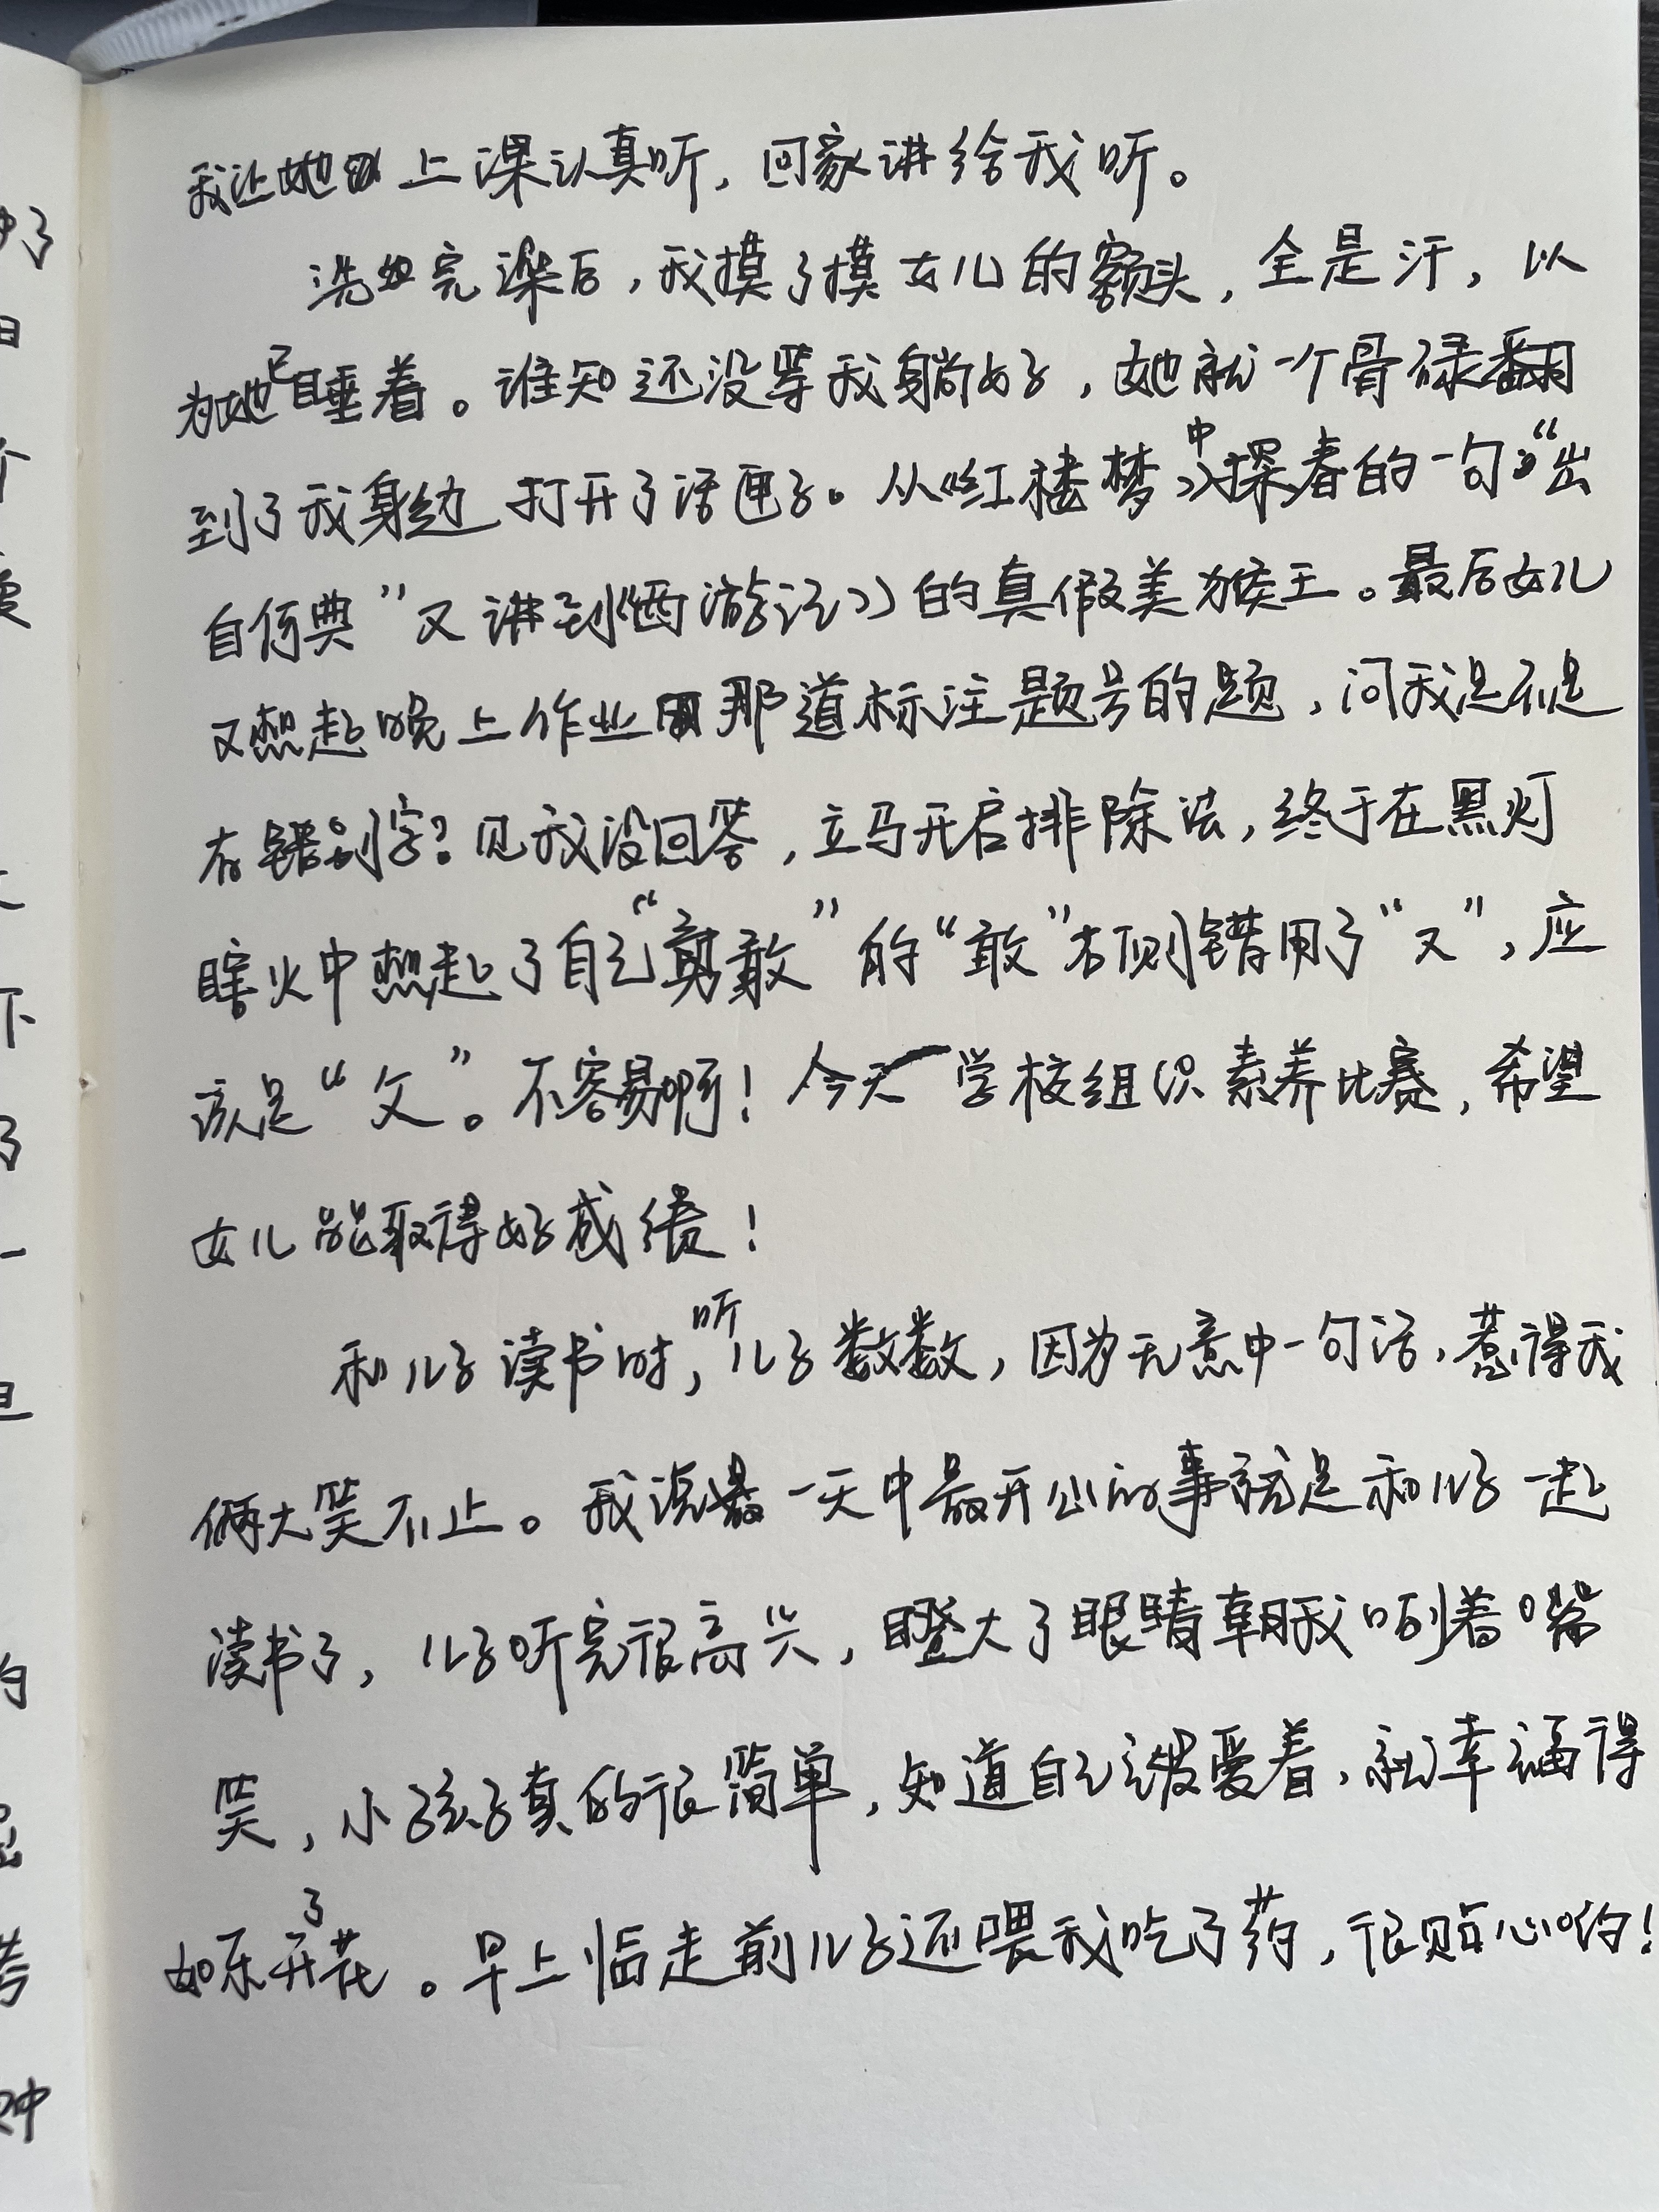 我让她上课认真听，回家讲给我听。
洗完澡后，我摸了摸女儿的额头，全是汗，以
为她已睡着。谁知还没等我躺好，她就一个骨碌翻
到了我身边打开了话匣子。从《红楼梦》中探春的一句“出
自何典”又讲到《西游记》的真假美猴王。最后女儿
又想起晚上作业那道标注题号的题，问我是不是
有错别字？见我没回答，立马开启排除法，终于在黑灯
瞎火中想起了自己“勇敢”的“敢”右侧错用了“又”，应
该是“攵”。不容易啊！今天学校组织素养比赛，希望
女儿能取得好成绩！
和儿子读书时，听儿子数数，因为无意中一句话，惹得我
俩大笑不止。我说一天中最开心的事就是和儿子一起
读书了，儿子听完很高兴，瞪大了眼睛朝我咧着嘴
笑，小孩子真的很简单，知道自己被爱着，就幸福得
如乐开了花。早上临走前儿子还喂我吃了药，很贴心哟！